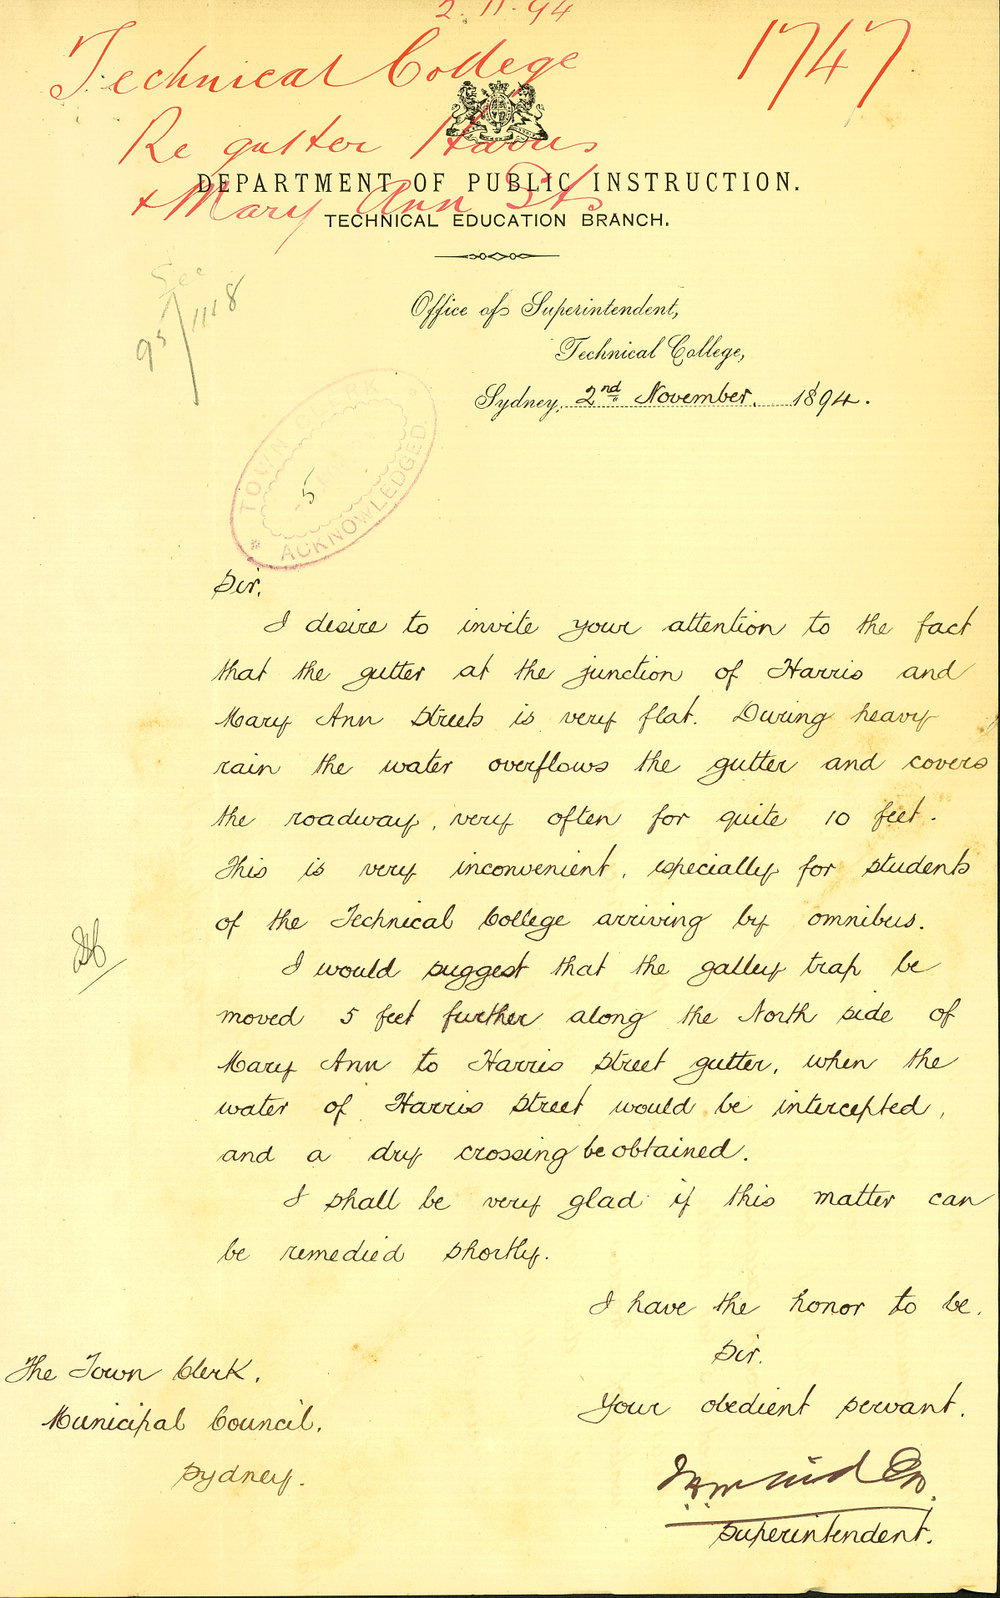 2.11.94
Technical College
1747
Re gutter Harris
& Mary Ann Sts
DEPARTMENT OF PUBLIC INSTRUCTION.
TECHNICAL EDUCATION BRANCH.
See
95/1118
Office of Superintendent,
Technical College,
Sydney, 2nd November. 1894.
TOWN CLERK
5
ACKNOWLEDGED
Sir,
I desire to invite your attention to the fact
that the gutter at the junction of Harris and
Mary Ann Streets is very flat. During heavy
rain the water overflows the gutter and covers
the roadway, very often for quite 10 feet.
This is very inconvenient, especially for students
of the Technical College arriving by omnibus.
I would suggest that the galley trap be
moved 5 feet further along the North side of
Mary Ann to Harris Street gutter, when the
water of Harris Street would be intercepted,
and a dry crossing be obtained.
I shall be very glad if this matter can
be remedied shortly.
I have the honor to be,
Sir,
Your obedient servant,
Superintendent.
The Town Clerk,
Municipal Council,
Sydney.